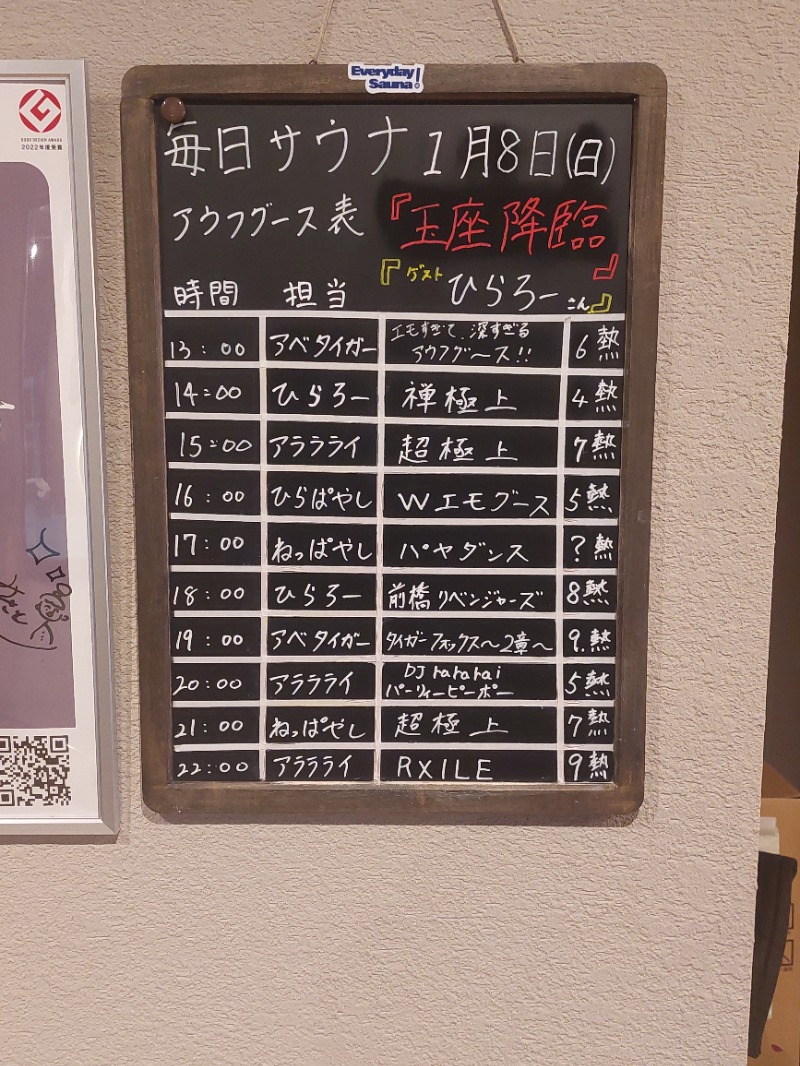 Everyday
Sauna!
GOOD DESIGN AWARD
2022年度受賞
毎日サウナ 1月8日(日)
アウフグース表 『玉座降臨』
時間 担当 『ゲスト ひらろー さん』
13:00 アベタイガー エモすぎて、深すぎる
アウフグース!! 6熱
14:00 ひらろー 禅極上 4熱
15:00 アラララライ 超極上 7熱
16:00 ひらぱやし Wエモグース 5熱
17:00 ねっぱやし パヤダンス ?熱
18:00 ひらろー 前橋リベンジャーズ 8熱
19:00 アベタイガー タイガーフォックス〜2章〜 9.熱
20:00 アラララライ DJ rararai
パーリィーピーポー 5熱
21:00 ねっぱやし 超極上 7熱
22:00 アラララライ RXILE 9熱